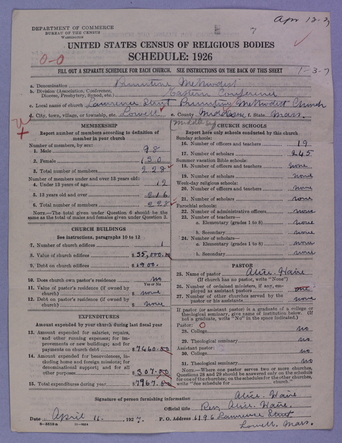 Apr 12-27
DEPARTMENT OF COMMERCE
BUREAU OF THE CENSUS
WASHINGTON
7
UNITED STATES CENSUS OF RELIGIOUS BODIES
0-0
SCHEDULE: 1926
FILL OUT A SEPARATE SCHEDULE FOR EACH CHURCH. SEE INSTRUCTIONS ON THE BACK OF THIS SHEET
1-3-7
a. Denomination Primitive Methodist
b. Division (Association, Conference, Diocese, Presbytery, Synod, etc.) Eastern Conference
c. Local name of church Lawrence Street Primitive Methodist Church
d. City, town, village, or township, etc. Lowell e. County Middlesex f. State Mass.
MEMBERSHIP
Report number of members according to definition of member in your church
Number of members, by sex:
1. Male 98
2. Female 130
3. Total number of members 228
Number of members under and over 13 years of age:
4. Under 13 years of age 12
5. 13 years old and over 216
6. Total number of members 228
NOTE.—The total given under Question 6 should be the same as the total of males and females given under Question 3.
CHURCH BUILDINGS
See instructions, paragraphs 10 to 12
7. Number of church edifices 1
8. Value of church edifices
9. Debt on church edifices
10. Does church own pastor's residence? no
11. Value of pastor's residence (if owned by church) $ none
12. Debt on pastor's residence (if owned by church) $ none
EXPENDITURES
Amount expended by your church during last fiscal year
13. Amount expended for salaries, repairs, and other running expenses; for improvements or new buildings; and for payments on church debt
14. Amount expended for benevolences, including home and foreign missions; for denominational support; and for all other purposes
15. Total expenditures during year
CHURCH SCHOOLS
Report here only schools conducted by this church
Sunday schools:
16. Number of officers and teachers 19
17. Number of scholars 245
Summer vacation Bible schools:
18. Number of officers and teachers none
19. Number of scholars none
Week-day religious schools:
20. Number of officers and teachers none
21. Number of scholars none
Parochial schools:
22. Number of administrative officers none
23. Number of teachers—
a. Elementary (grades 1 to 8) none
b. Secondary none
24. Number of scholars—
a. Elementary (grades 1 to 8) none
b. Secondary none
PASTOR
25. Name of pastor
(If church has no pastor, write "None")
26. Number of ordained ministers, if any, employed as assistant pastors
27. Number of other church workers serving as pastor or his assistants none
If pastor or assistant pastor is a graduate of a college or theological seminary, give name of institution below. (If not a graduate, write "No" in the space indicated.)
Pastor:
28. College no
29. Theological seminary no
Assistant pastor:
30. College no
31. Theological seminary no
Signature of person furnishing information
Official title
Date April 16, 1927. P. O. Address 119 Lawrence Street
Lowell, Mass.